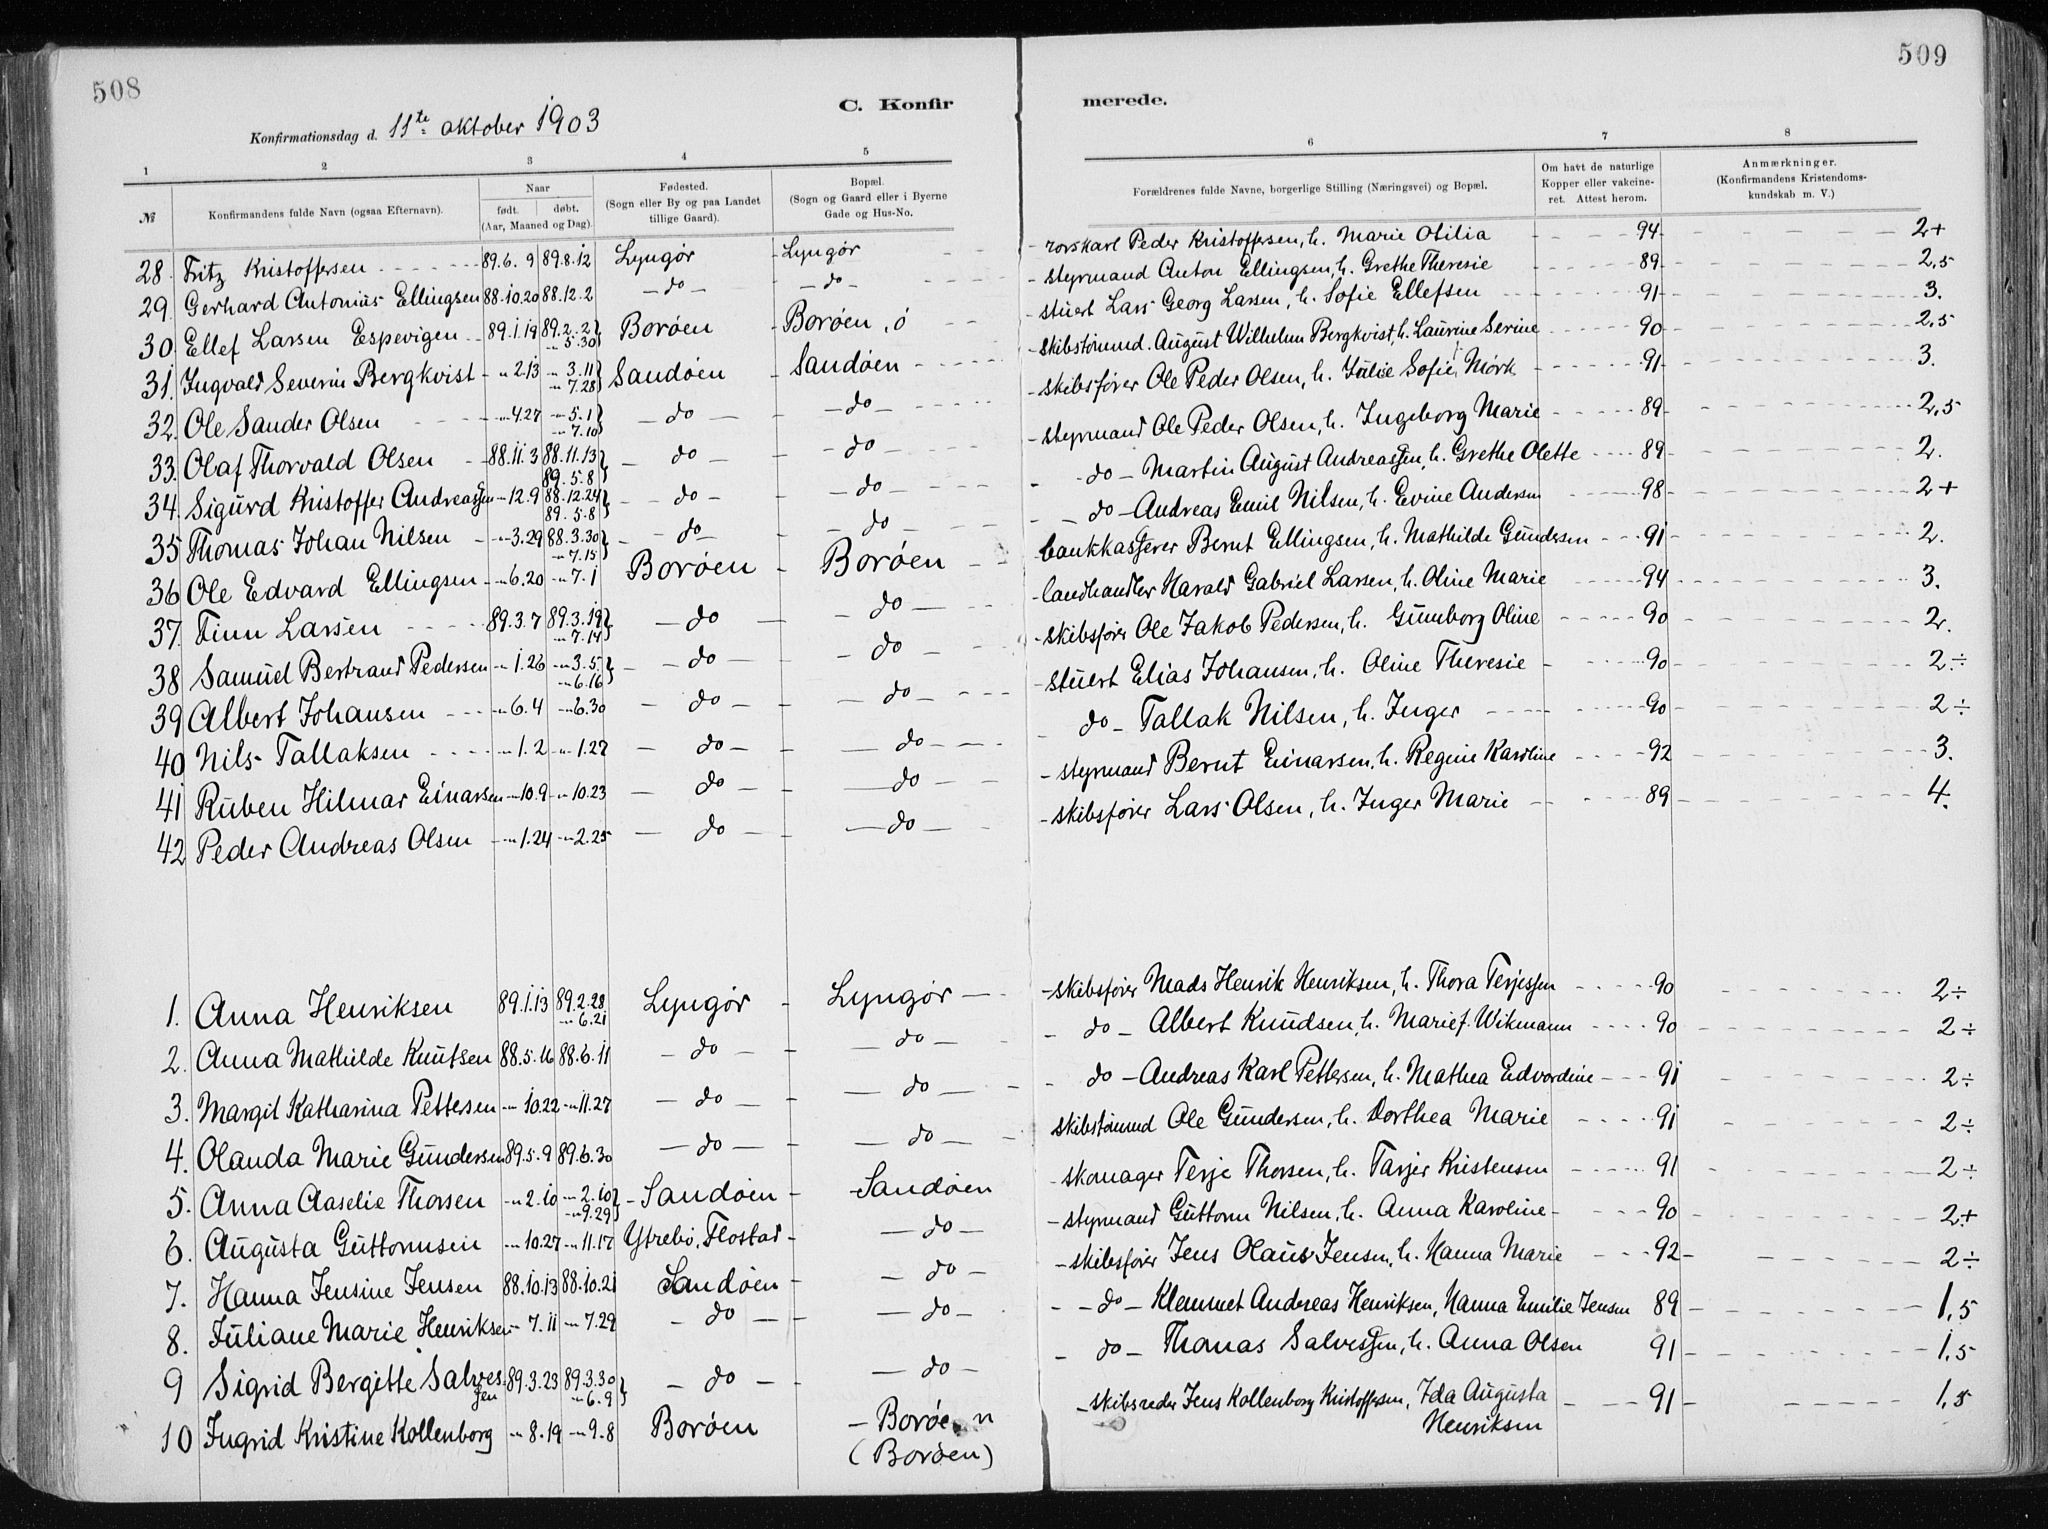 508
509
C. Konfir merede.
Konfirmationsdag d. 11te oktober 1903
1 2 3 4 5 6 7 8
№
Konfirmandens fulde Navn (ogsaa Efternavn).
Naar
født. døbt.
(Aar, Maaned og Dag)
Fødested.
(Sogn eller By og paa Landet
tillige Gaard).
Bopæl.
(Sogn og Gaard eller i Byerne
Gade og Hus-No.
Forældrenes fulde Navne, borgerlige Stilling (Næringsvei) og Bopæl.
Om havt de naturlige
Kopper eller vakcine-
ret. Attest herom.
Anmærkninger.
(Konfirmandens Kristendoms-
kundskab m. V.)
28. Fritz Kristoffersen 89.6.9 89.8.12 Lyngør Lyngør rorskarl Peder Kristoffersen, h. Marie Otilia 94 2+
29. Gerhard Antonius Ellingsen 88.10.20 88.12.2 do do styrmand Anton Ellingsen, h. Grethe Theresie 89 2,5
30 Ellef Larsen Espevigen 89.1.19 89.2.2 } 5.30 Borøen Borøen, ö stuert Lars Georg Larsen, h. Sofie Ellefsen 91 3.
31. Ingvald Severin Bergkvist " 2.13 " 3.11 } " 7.28 Sandøen Sandøen skibstømmd. August Wilhelm Bergkvist, h. Laurine Serine 90 2,5
32. Ole Sander Olsen " 4.27 " 5.1 } " 7.10 do do skibsfører Ole Peder Olsen, h. Julie Sofie Mørk 91 3.
33. Olaf Thorvald Olsen 88.11.3 88.11.13 } 89.5.8 do do styrmand Ole Peder Olsen, h. Ingeborg Marie 89 2,5
34. Sigurd Kristoffer Andreassen " 12.9 88.12.24 } 89.5.8 do do do Martin August Andreassen, h. Grethe Olette 89 2.
35 Thomas Johan Nilsen " 3.29 88.3.30 } " 7.15 do do do Andreas Emil Nilsen, h. Evine Andersen 98 2+
36 Ole Edvard Ellingsen " 6.20 " 7.1 Borøen Borøen bankkasserer Bernt Ellingsen, h. Mathilde Gundersen 91 2.
37. Finn Larsen 89.3.7 89.3.19 } " 7.14 do do landhandler Harald Gabriel Larsen, h. Oline Marie 94 3.
38 Samuel Bertrand Pedersen " 1.26 " 3.5 } " 6.16 do do skibsfører Ole Jakob Pedersen, h. Gunborg Oline 90 2.
39 Albert Johansen " 6.4 " 6.30 do do stuert Elias Johansen, h. Oline Theresie 90 2÷
40 Nils Tallaksen " 1.2 " 1.27 do do do Tallak Nilsen, h. Inger 90 2÷
41 Ruben Hilmar Einarsen " 10.9 " 10.23 do do styrmand Bernt Einarsen, h. Regine Karoline 92 3.
42 Peder Andreas Olsen " 1.24 " 2.25 do do skibsfører Lars Olsen, h. Inger Marie 89 4.
1. Anna Henriksen 89.1.13 89.2.28 " 6.21 Lyngør Lyngør skibsfører Mads Henrik Henriksen, h. Thora Terjessen 90 2÷
2. Anna Mathilde Knutsen 88.5.16 88.6.11 do do do Albert Knudsen, h. Marie f. Wikmann 90 2÷
3. Margit Katharina Pettesen " 10.22 " 11.27 do do do Andreas Karl Pettersen, h. Mathea Edvardine 91 2÷
4. Olanda Marie Gundersen 89.5.9 89.6.30 do do skibstømmd Ole Gundersen, h. Dorthea Marie 91 2÷
5. Anna Aaselie Thorsen " 2.10 " 2.10 } " 9.29 Sandøen Sandøen skomager Terje Thorsen, h. Tarjer Kristensen 91 2÷
6. Augusta Guttormsen " 10.27 " 11.17 Ytrebø, Flostad do styrmand Guttorm Nilsen, h. Anna Karoline 90 2+
7. Hanna Jensine Jensen 88.10.13 88.10.21 Sandøen do skibsfører Jens Olaus Jensen, h. Hanna Marie 92 2÷
8. Juliane Marie Henriksen " 7.11 " 7.29 do do do Klemmet Andreas Henriksen, Hanna Emilie Jensen 89 1,5
9 Sigrid Bergitte Salvessen 89.3.23 89.3.30 } " 6.9 do do do Thomas Salvessen, h. Anna Olsen 91 1,5
10 Ingrid Kristine Kollenborg " 8.19 " 9.8 Borøen Borøen skibsreder Jens Kollenborg Kristoffersen, Ida Augusta 91 1,5
(Borøen) Henriksen